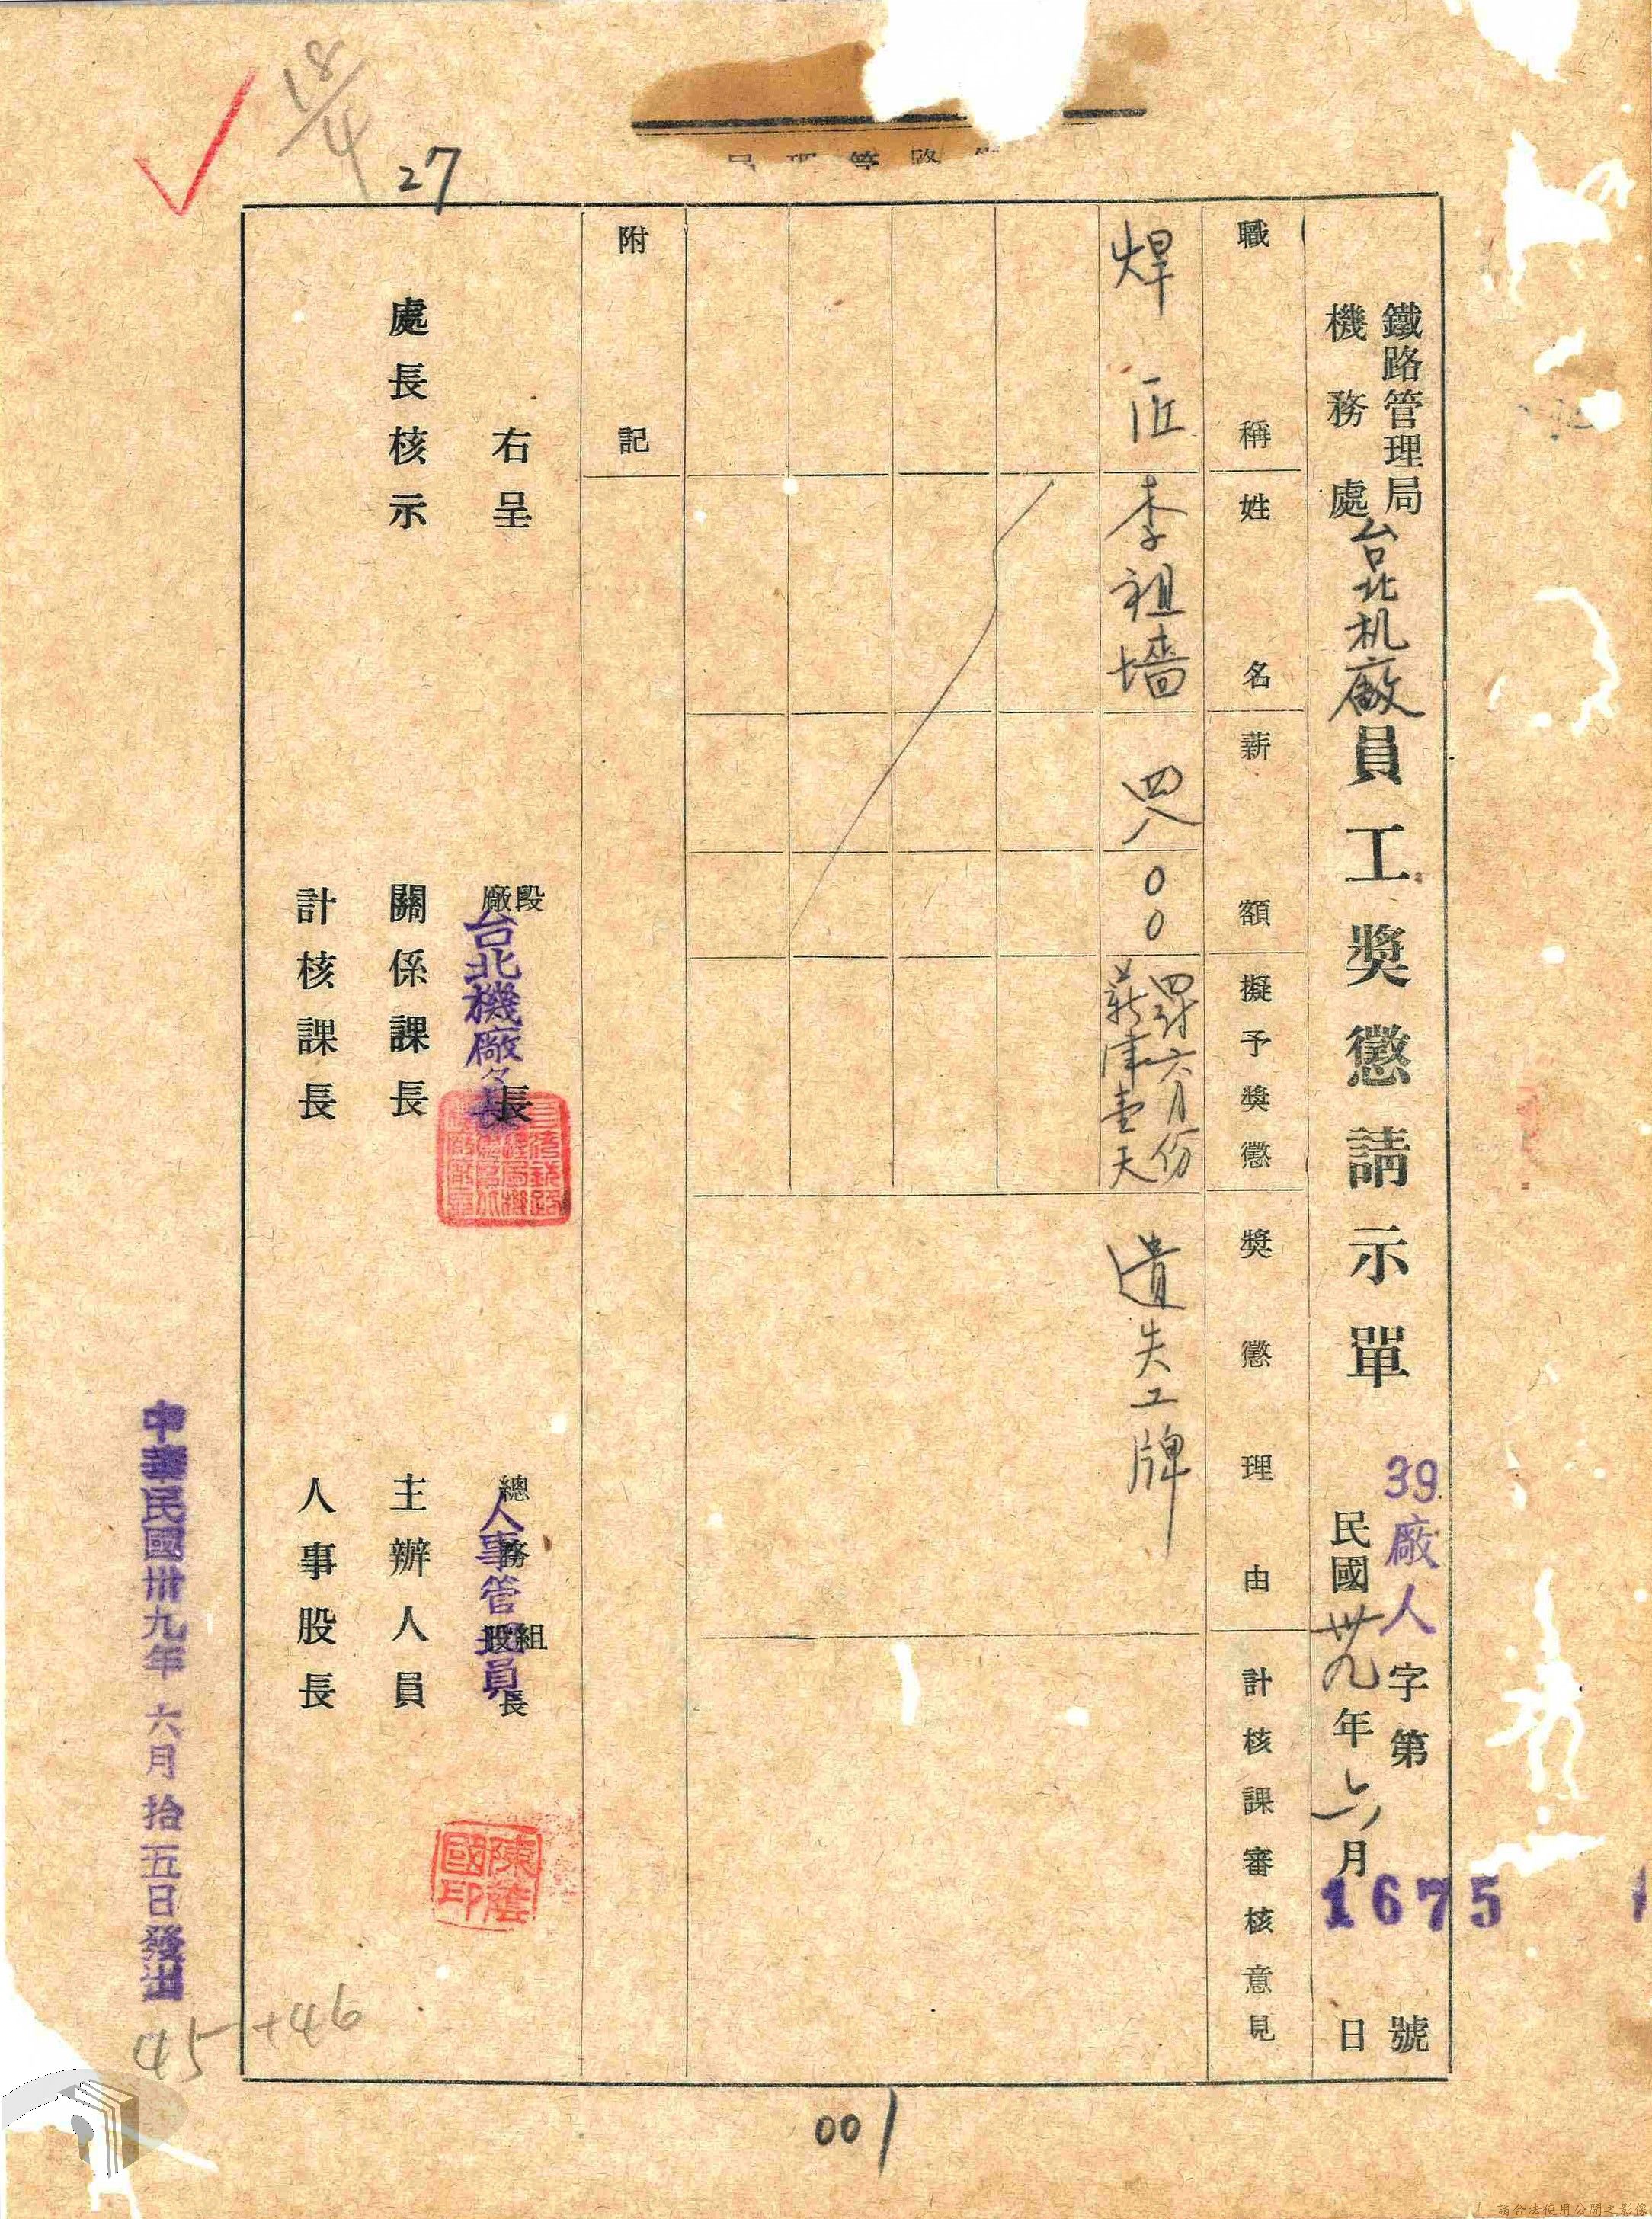 鐵路管理局
機務處
台北机廠員工獎懲請示單
39廠人字第1675號
民國卅九年六月 日
職稱 姓名 薪額 擬予獎懲 獎懲理由 計核課審核意見
焊匠 李祖墻 四八〇〇
罰六月份
薪津壹天
遺失工牌
附記
右呈
段廠長
台北機廠々長
總務組股長
人事管理員
陳蔭國印
處長核示
關係課長
主辦人員
計核課長
人事股長
中華民國卅九年六月拾五日發出
18/4
27
45+46
001
請合法使用公開之影像